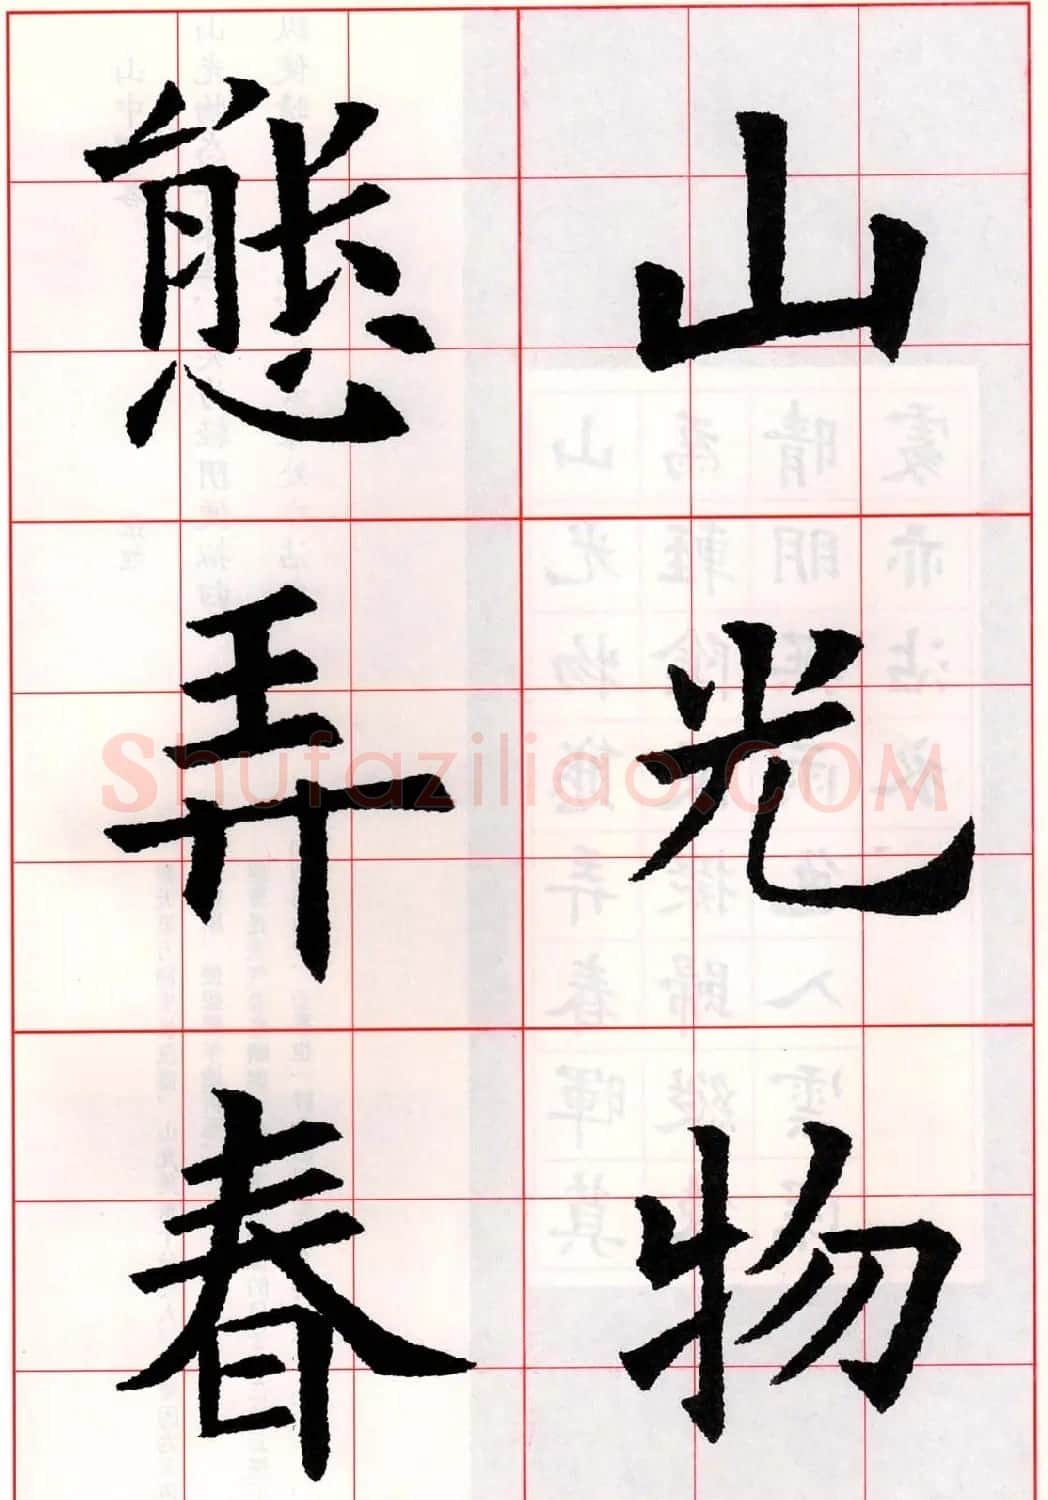 山光物
態弄春
shufaziliao.com